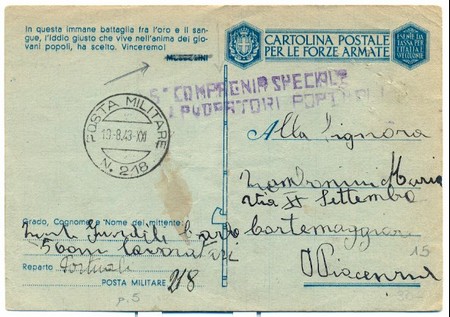 In questa immane battaglia fra l'oro e il san-
gue, l'Iddio giusto che vive nell'anima dei gio-
vani popoli, ha scelto. Vinceremo!
MUSSOLINI
CARTOLINA POSTALE
PER LE FORZE ARMATE
5ª COMPAGNIA SPECIALE
LAVORATORI PORTUALI
POSTA MILITARE
19.8.43-XXI
N. 218
Alla Signora
Maria
Via XX Settembre
Cortemaggiore
Piacenza
15
Grado, Cognome e Nome del mittente:
Lavoratori
Reparto Portuali
POSTA MILITARE 218
p. 5